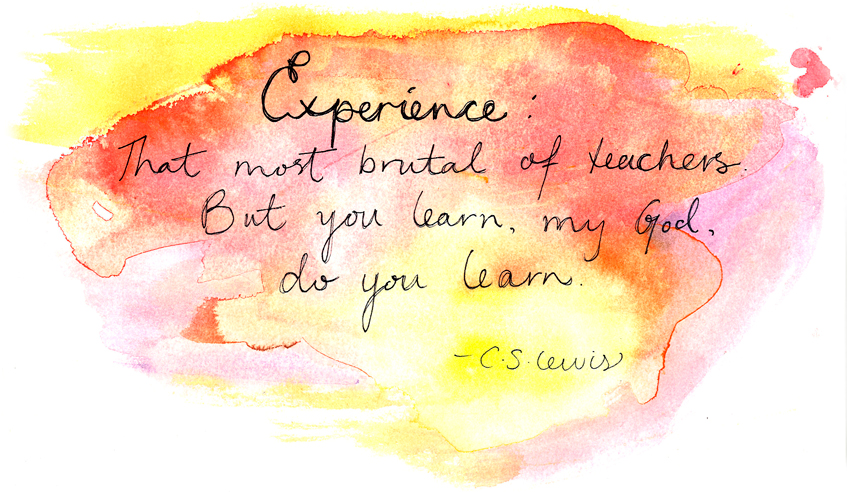 Experience:
That most brutal of teachers.
But you learn, my God,
do you learn.
- C.S. Lewis